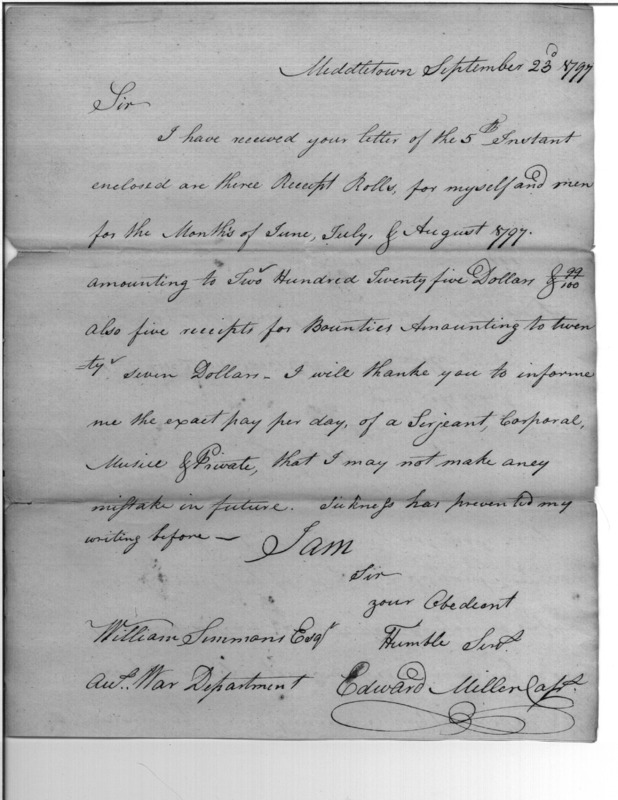 Middletown September 23d 1797
Sir
I have received your letter of the 5th Instant
enclosed are three Receipt Rolls, for myself and men
for the Months of June, July, & August 1797.
amounting to Two Hundred Twenty five Dollars & 99/100
also five receipts for Bounties Amaunting to twen
ty seven Dollars - I will thanke you to informe
me the exact pay per day, of a Serjeant, Corporal,
Musice & Private, that I may not make aney
mistake in future. Sickness has prevented my
writing before —
I am
Sir
your Obedient
William Simmons Esqr
Humble Servt.
Aut. War Department
Edward Miller Capt.